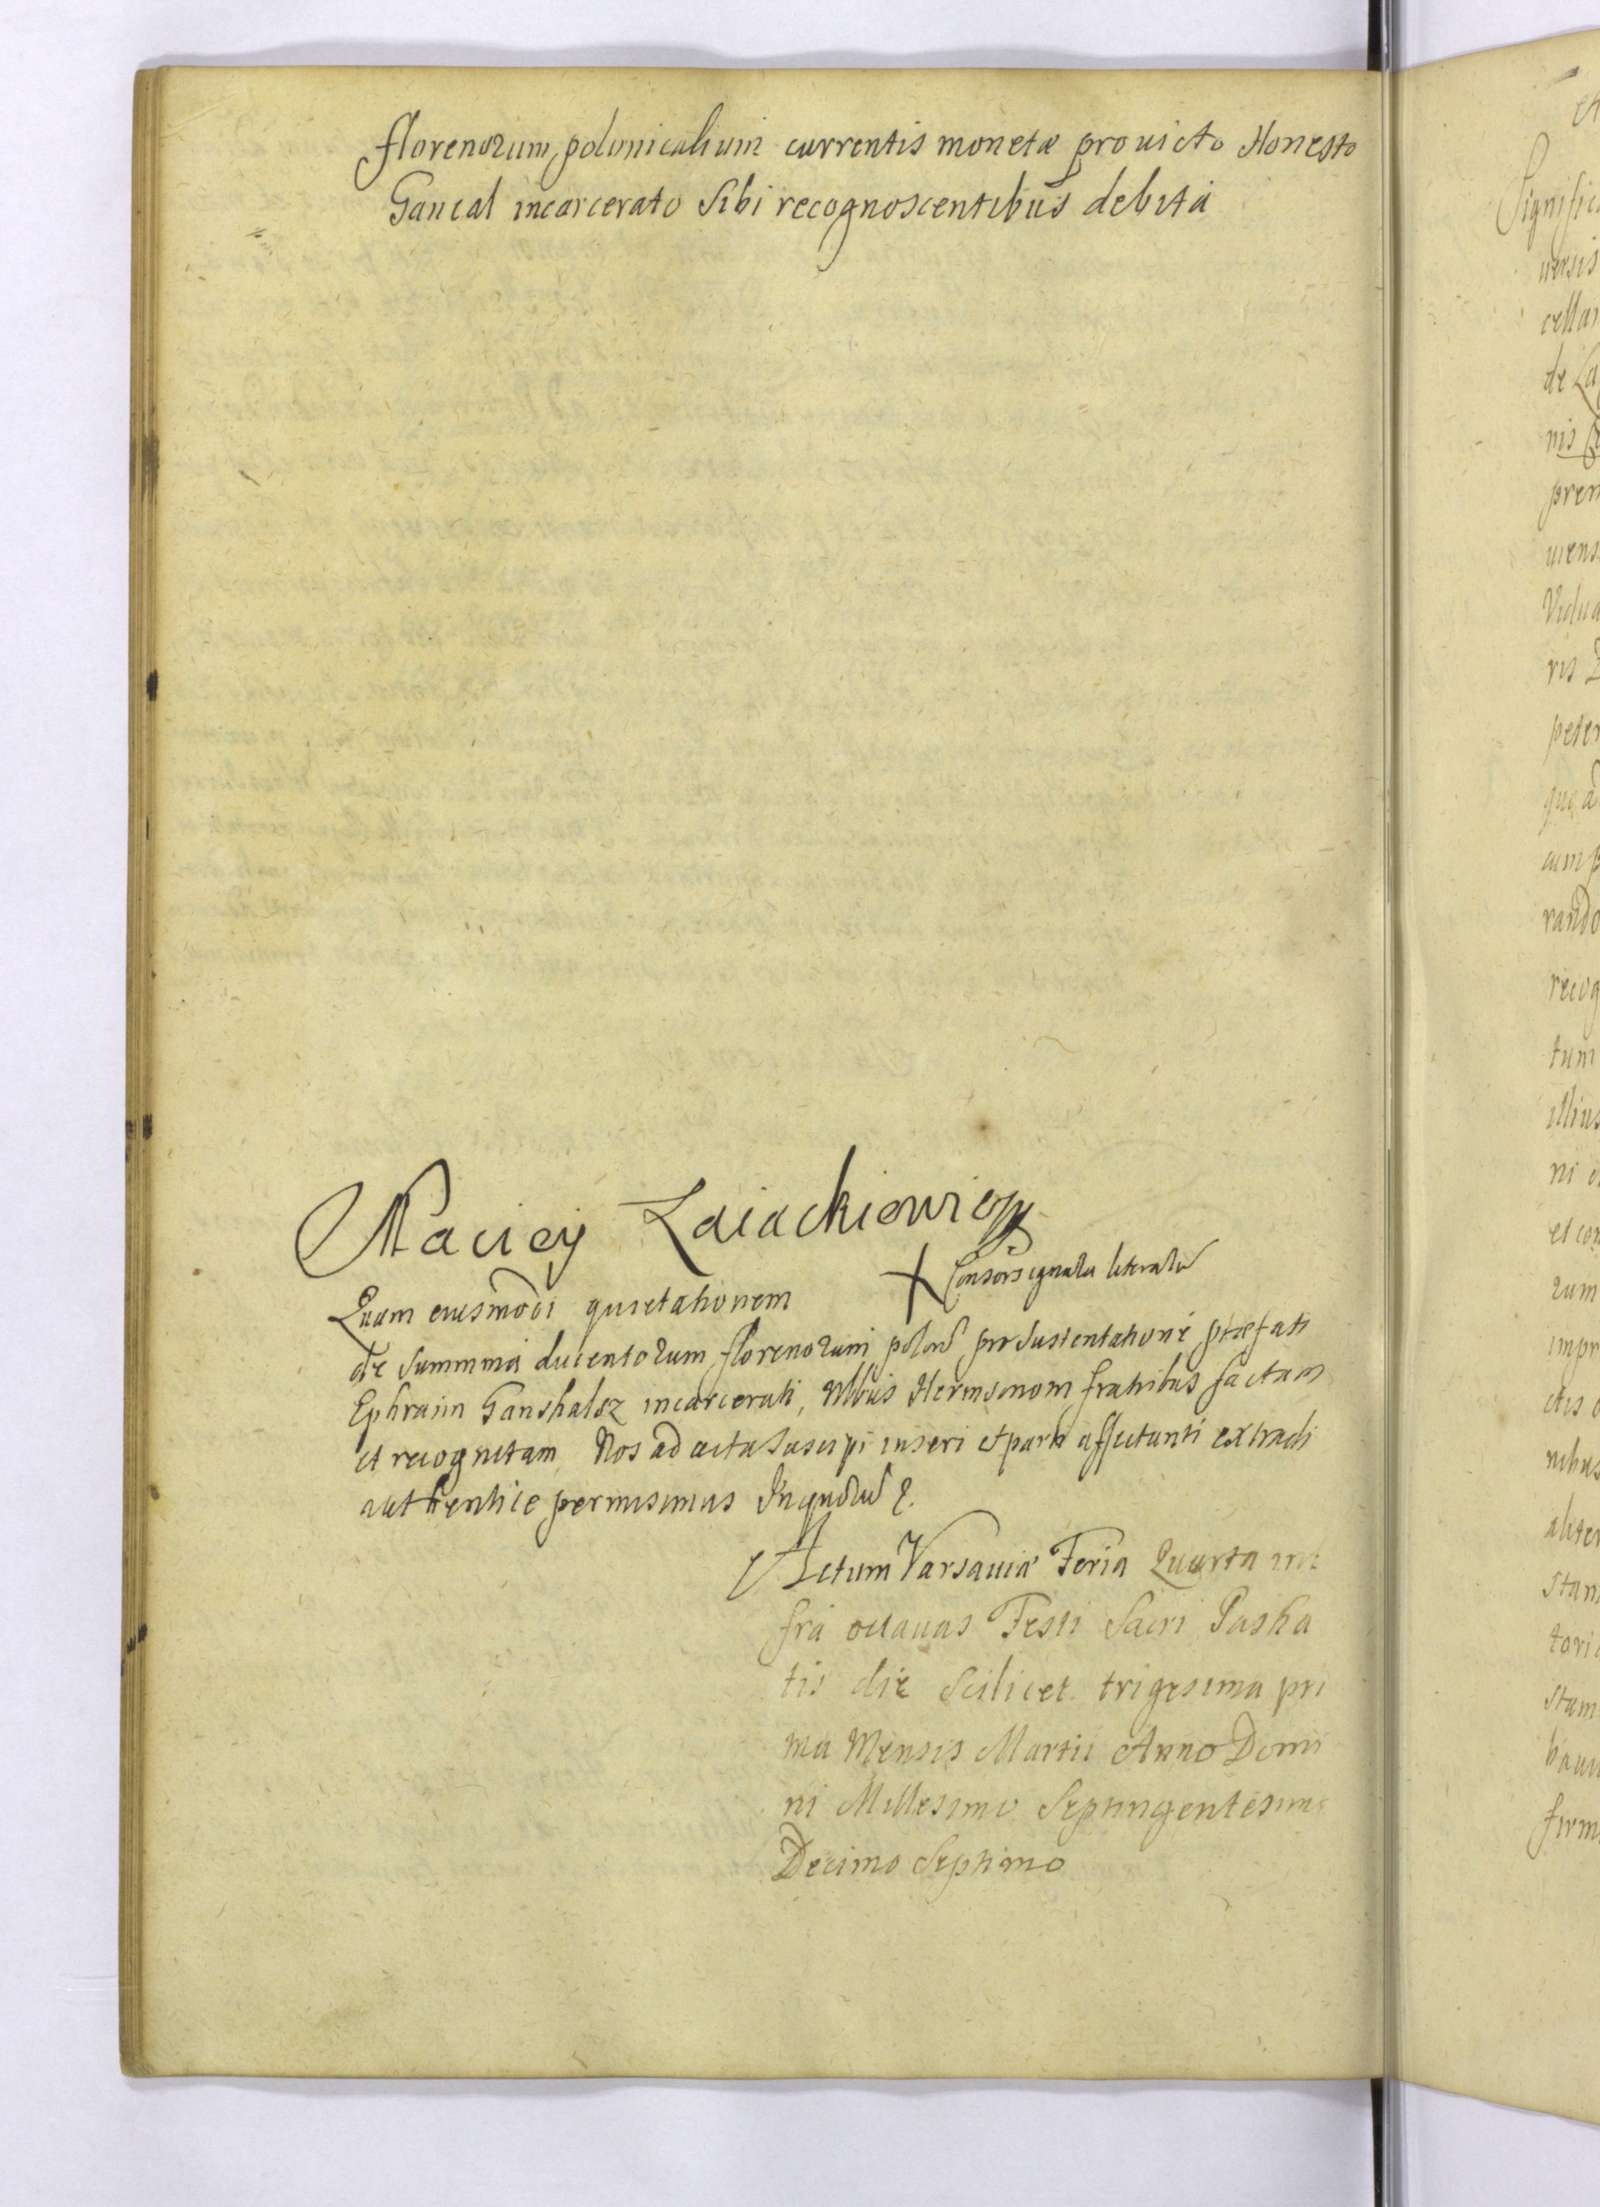 florenorum polonicalium currentis monetæ pro victo Honesto
Gancal incarcerato sibi recognoscentibus debita
Maciey Zaiackiewicz
X Consors ignara literarum
Quam eiusmodi quietationem
de summa ducentorum florenorum polon pro sustentatione præfati
Ephraim Ganshalsz incarcerati, Nlbus fratribus factam
et recognitam Nos ad acta suscipi inseri et parti affectanti extradi
authentice permisimus
Actum Varsaviæ Feria Quarta in
fra octavas Festi Sacri Pasha
tis die scilicet trigesima pri
ma Mensis Martii Anno Domi
ni Millesimo Septingentesimo
Decimo Septimo
et
Signific
versis
cellar
de La
nis
prem
viens
Vidua
ris
peter
qua a
cum p
rando
recog
tum
illius
ni
et con
rum
impr
ctis
nibus
aliter
stan
tori
stam
bavi
firm